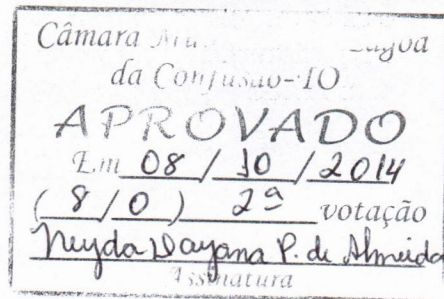 Câmara
da Confusão-TO
APROVADO
Em 08 / 10 / 2014
( 8/0 ) 2ª votação
Neyda Dayana P. de Almeida
Assinatura